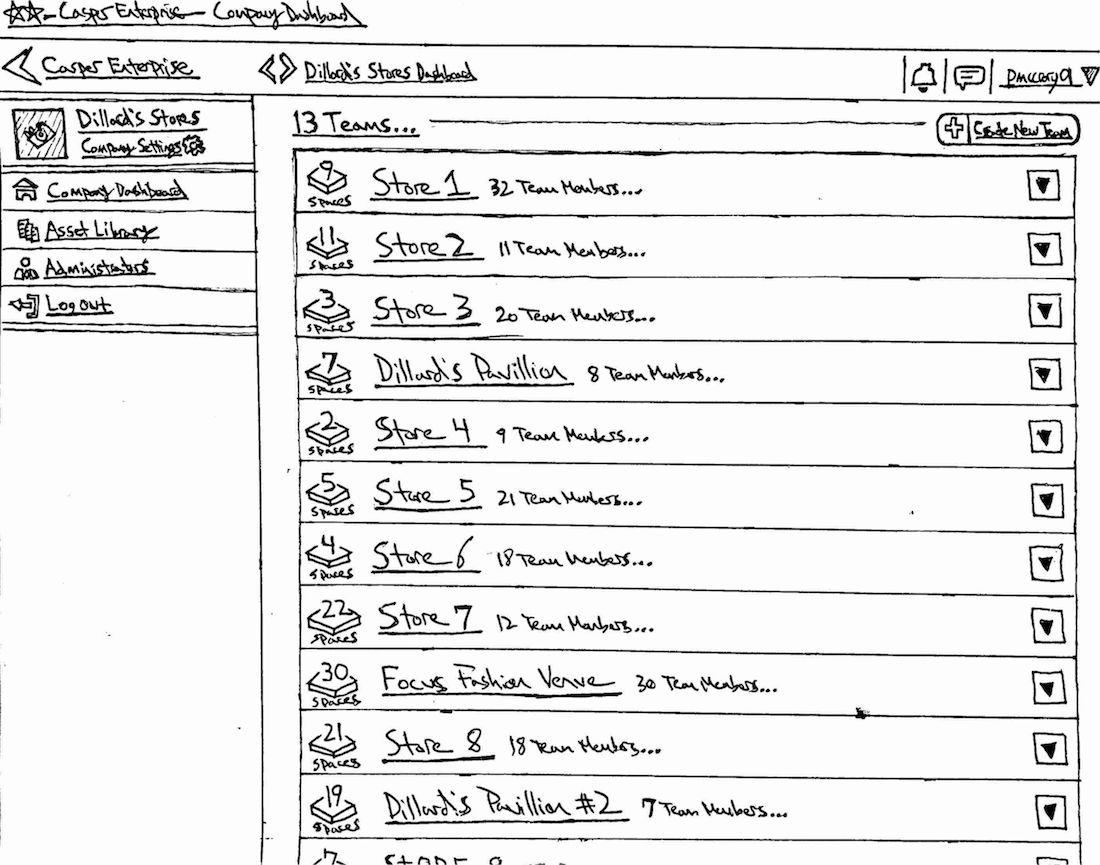 Casper Enterprise – Company Dashboard
Casper Enterprise
Dillard's Stores Dashboard
pmccory9
Dillard's Stores
Company Settings
Company Dashboard
Asset Library
Administrators
Log out
13 Teams...
Create New Team
9 spaces Store 1 32 Team Members...
11 spaces Store 2 11 Team Members...
3 spaces Store 3 20 Team Members...
7 spaces Dillard's Pavillion 8 Team Members...
2 spaces Store 4 9 Team Members...
5 spaces Store 5 21 Team Members...
4 spaces Store 6 18 Team Members...
22 spaces Store 7 12 Team Members...
30 spaces Focus Fashion Verve 30 Team Members...
21 spaces Store 8 18 Team Members...
19 spaces Dillard's Pavillion #2 7 Team Members...